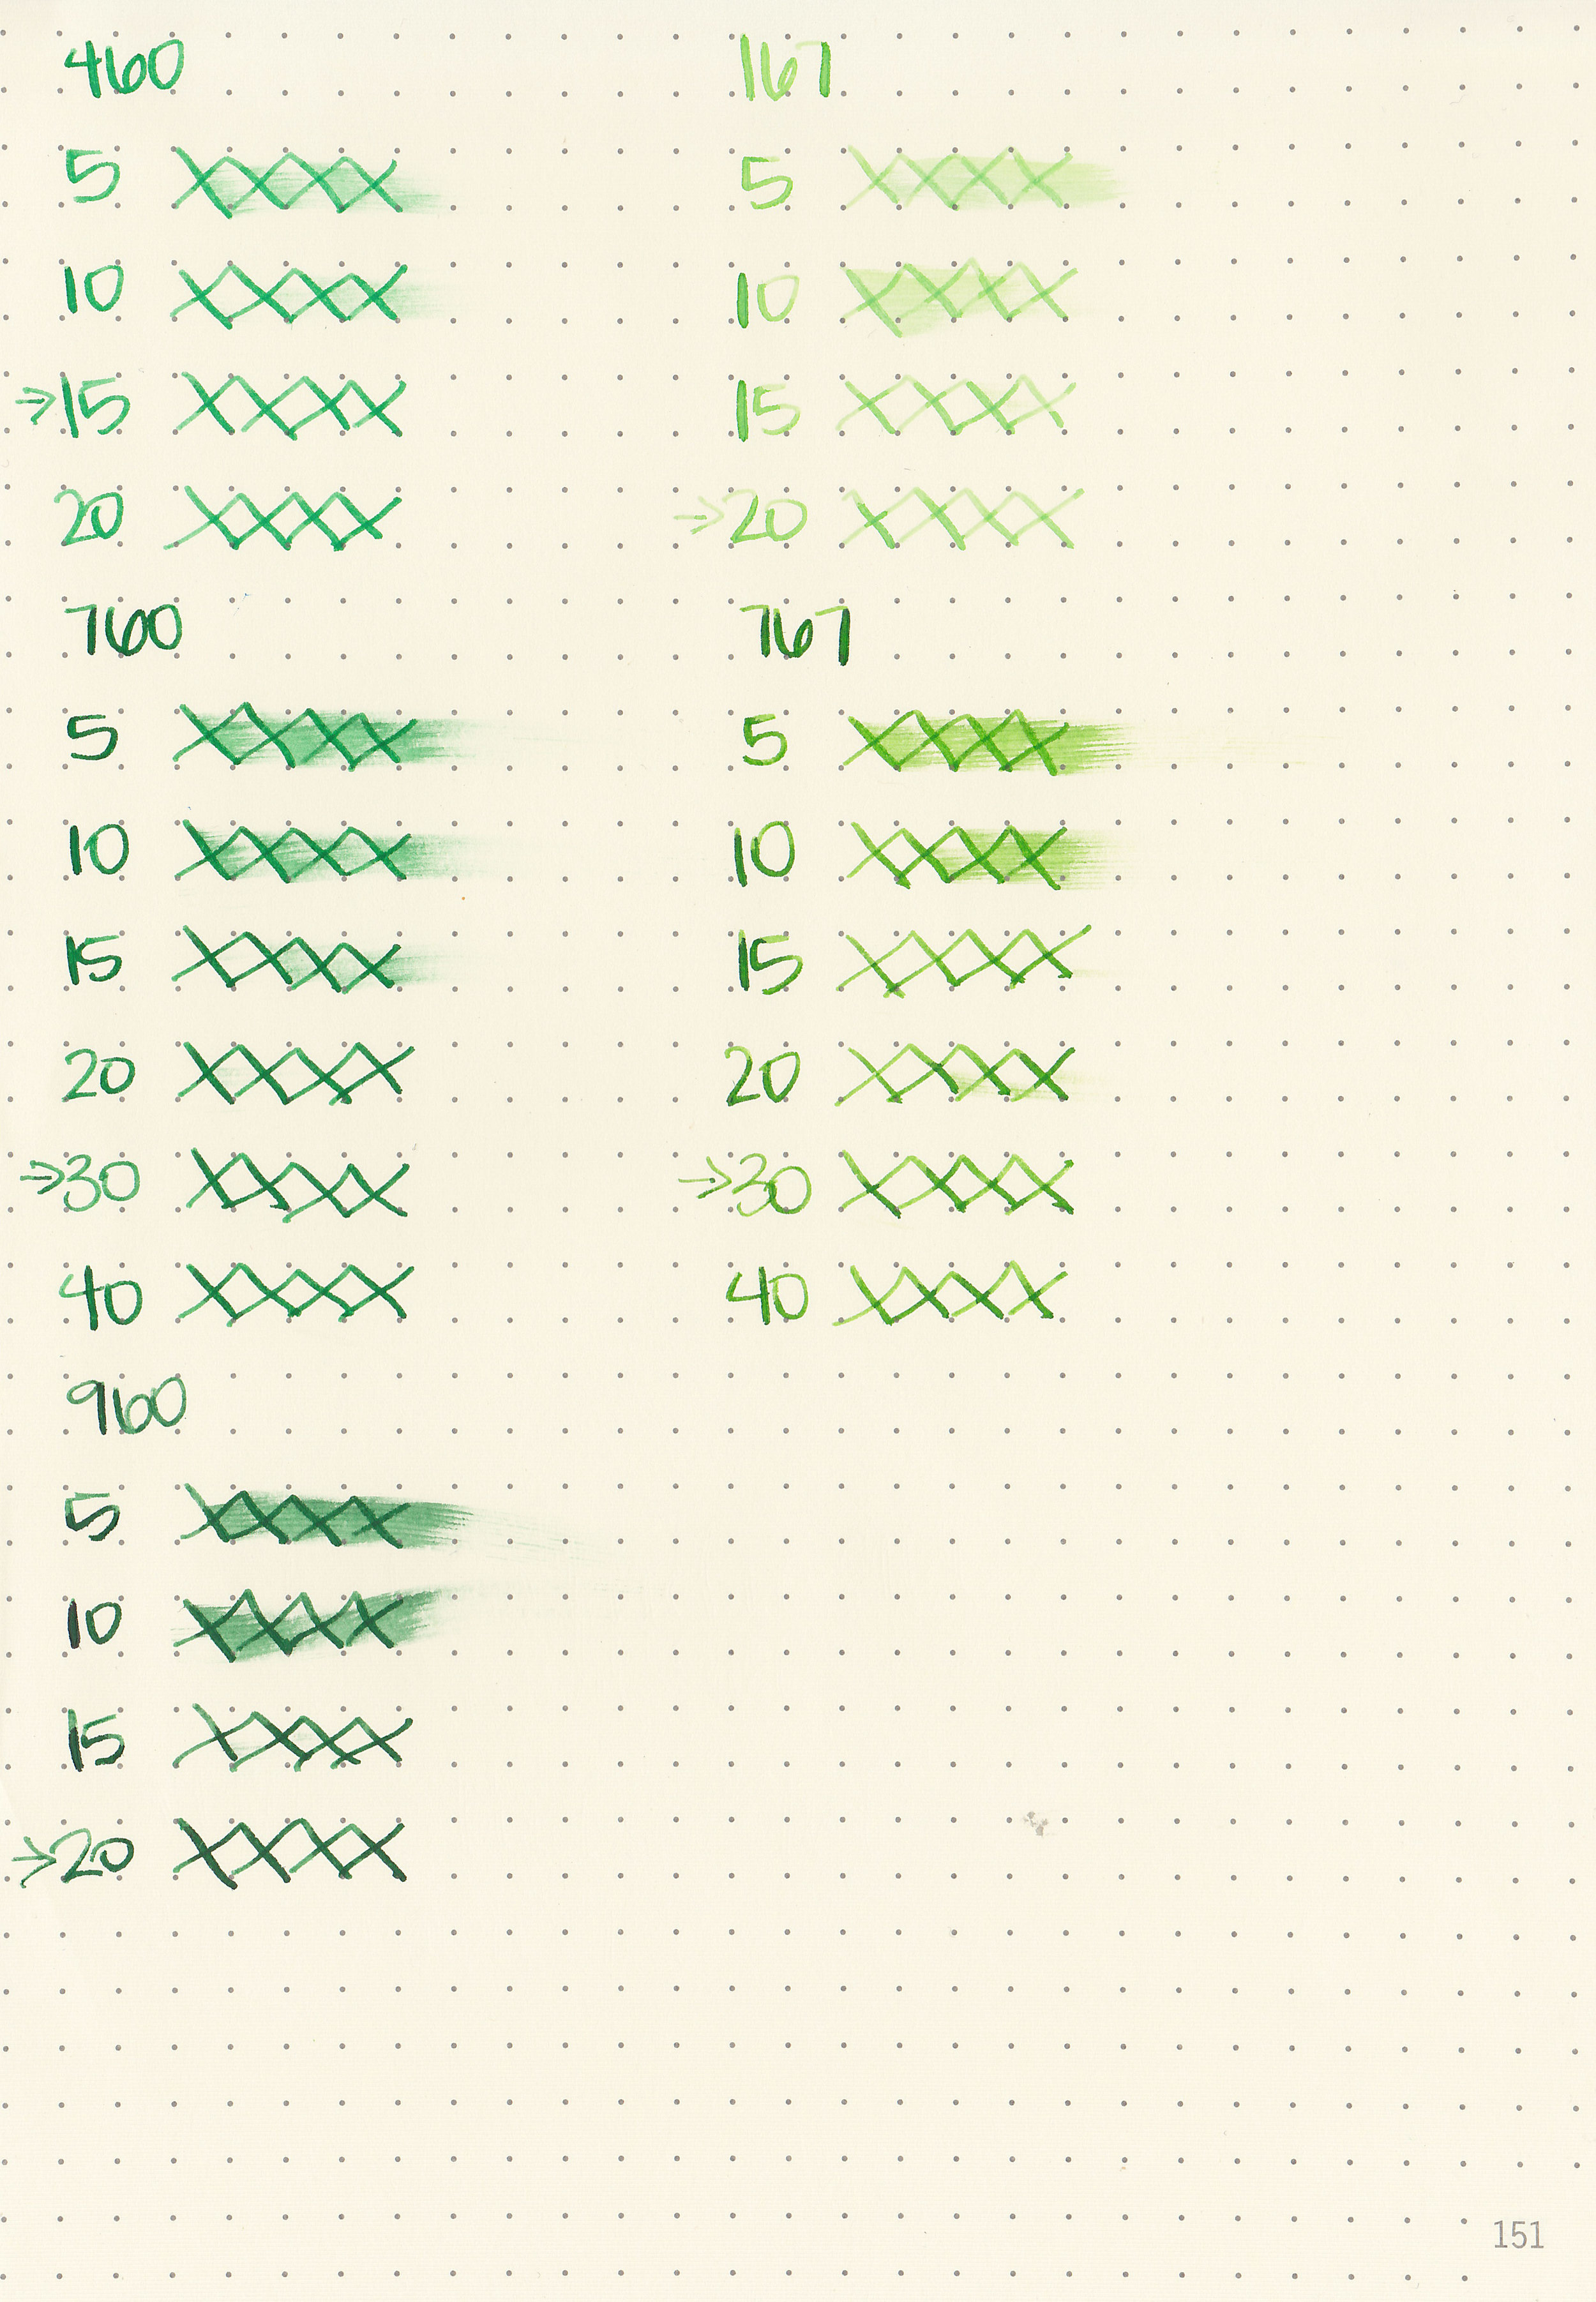 460
5
10
→15
20
760
5
10
15
20
→30
40
960
5
10
15
→20
167
5
10
15
→20
767
5
10
15
20
→30
40
151